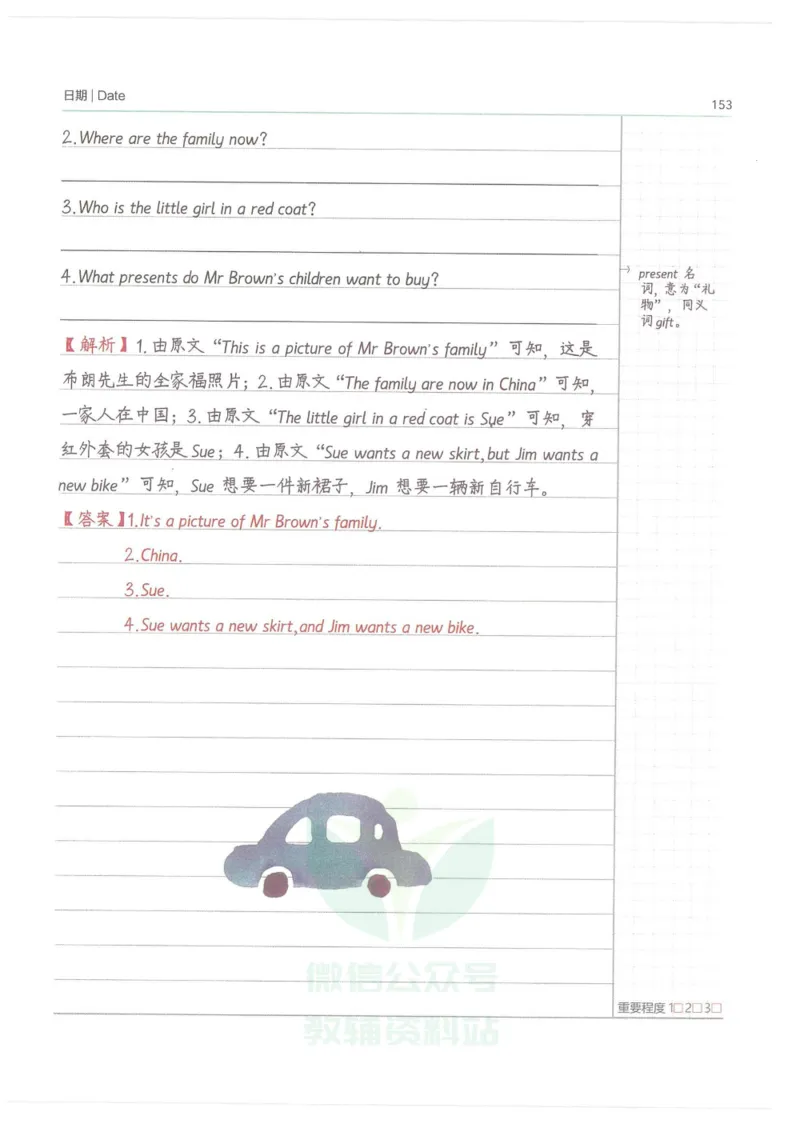 日期 | Date
153
2.Where are the family now?
3.Who is the little girl in a red coat?
4.What presents do Mr Brown's children want to buy?
present 名
词，意为“礼
物”，同义
词gift。
【解析】1.由原文“This is a picture of Mr Brown's family”可知，这是
布朗先生的全家福照片；2.由原文“The family are now in China”可知，
一家人在中国；3.由原文“The little girl in a red coat is Sue”可知，穿
红外套的女孩是Sue；4.由原文“Sue wants a new skirt,but Jim wants a
new bike”可知，Sue 想要一件新裙子，Jim 想要一辆新自行车。
【答案】1.It's a picture of Mr Brown's family.
2.China.
3.Sue.
4.Sue wants a new skirt,and Jim wants a new bike.
微信公众号
教辅资料站
重要程度 1□2□3□